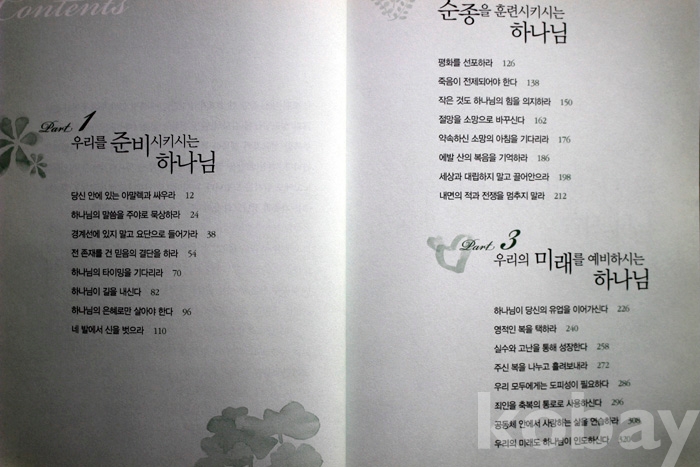 Contents
Part 1
우리를 준비시키시는
하나님
당신 안에 있는 아말렉과 싸우라 12
하나님의 말씀을 주야로 묵상하라 24
경계선에 있지 말고 요단으로 들어가라 38
전 존재를 건 믿음의 결단을 하라 54
하나님의 타이밍을 기다리라 70
하나님이 길을 내신다 82
하나님의 은혜로만 살아야 한다 96
네 발에서 신을 벗으라 110
순종을 훈련시키시는
하나님
평화를 선포하라 126
죽음이 전제되어야 한다 138
작은 것도 하나님의 힘을 의지하라 150
절망을 소망으로 바꾸신다 162
약속하신 소망의 아침을 기다리라 176
에발 산의 복음을 기억하라 186
세상과 대립하지 말고 끌어안으라 198
내면의 적과 전쟁을 멈추지 말라 212
Part 3
우리의 미래를 예비하시는
하나님
하나님이 당신의 유업을 이어가신다 226
영적인 복을 택하라 240
실수와 고난을 통해 성장한다 258
주신 복을 나누고 흘려보내라 272
우리 모두에게는 도피성이 필요하다 286
죄인을 축복의 통로로 사용하신다 296
공동체 안에서 사랑하는 삶을 연습하라 308
우리의 미래도 하나님이 인도하신다 320
kobay